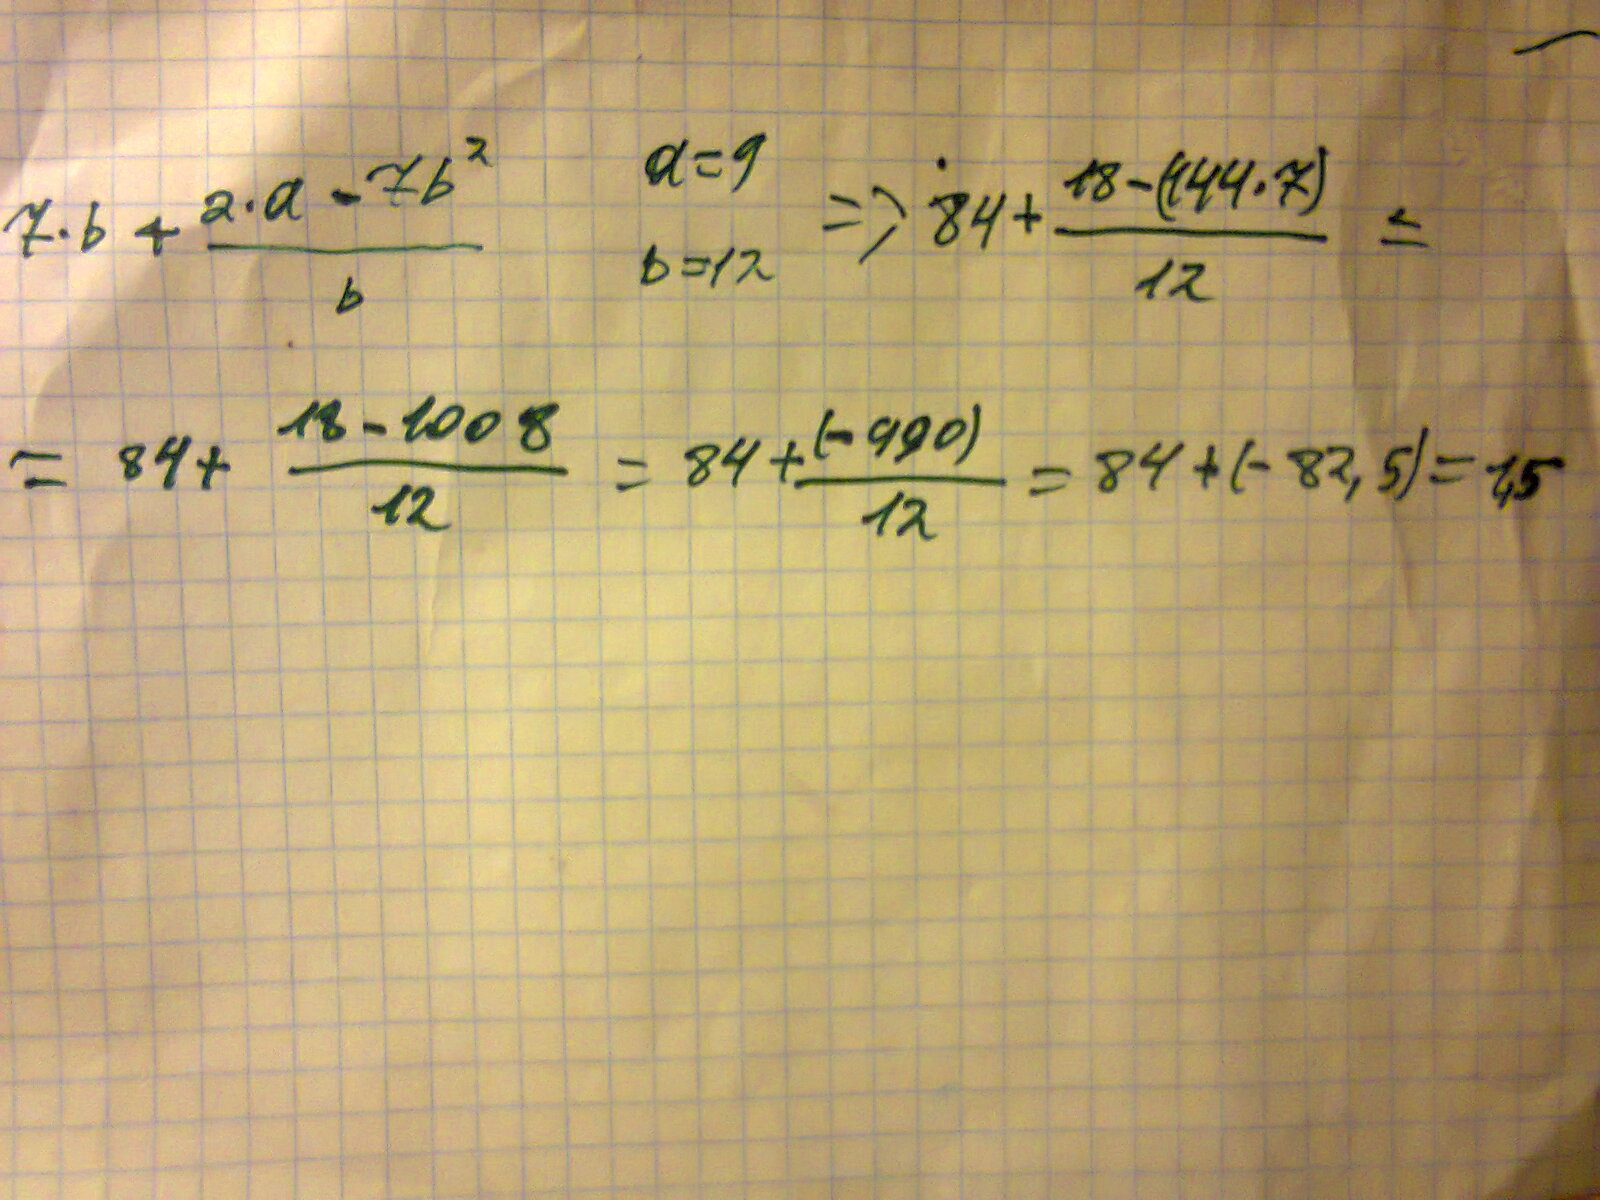 7·b + (2·a - 7b²)/b   a=9 b=12   => 84 + (18-(144·7))/12 =
= 84 + (18-1008)/12 = 84 + (-990)/12 = 84 + (-82,5) = 1,5